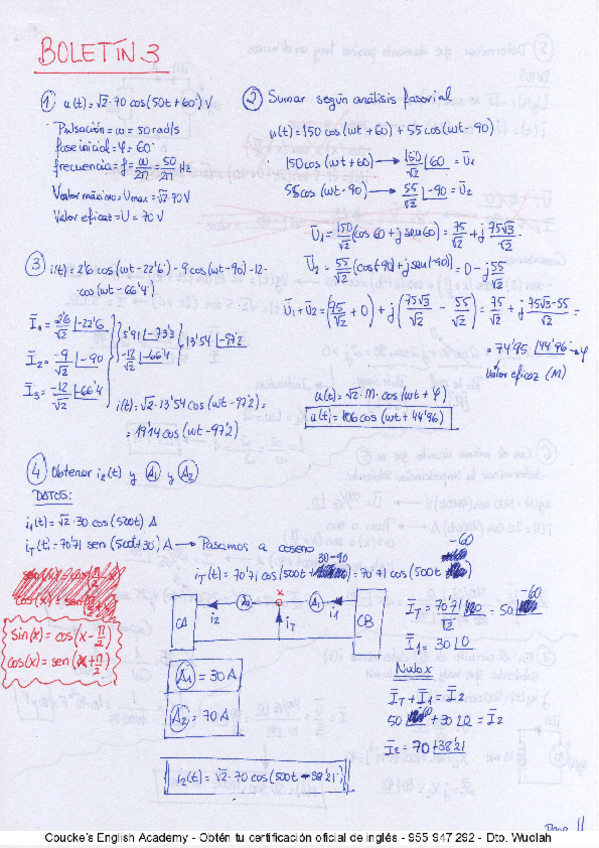 BOLETÍN 3
① u(t)=√2·70 cos(50t+60°) V
Pulsación=ω=50 rad/s
fase inicial=φ=60°
frecuencia=f=ω/2π=50/2π Hz
Valor máximo=Umax=√2·70V
Valor eficaz=U=70V
② Sumar según análisis fasorial
u(t)=150 cos(ωt+60)+55 cos(ωt-90)
150 cos(ωt+60)→150/√2 |60 = Ū₁
55 cos(ωt-90)→55/√2 |-90 = Ū₂
Ū₁=150/√2 (cos 60+j sen 60)=75/√2+j 75√3/√2
Ū₂=55/√2 (cos(-90)+j sen(-90))=0-j 55/√2
Ū₁+Ū₂=(75/√2+0)+j(75√3/√2-55/√2)=75/√2+j (75√3-55)/√2=
=74'95 |44'96→φ
Valor eficaz (M)
u(t)=√2·M·cos(ωt+φ)
u(t)=106 cos(ωt+44'96)
③ i(t)=2'6 cos(ωt-22'6)-9 cos(ωt-90)-12·
·cos(ωt-66'4)
Ī₁=2'6/√2 |-22'6
Ī₂=-9/√2 |-90
Ī₃=-12/√2 |-66'4
5'91 |-73'3
-12/√2 |-66'4
13'54 |-97'2
i(t)=√2·13'54 cos(ωt-97'2)=
=19'14 cos(ωt-97'2)
④ Obtener i₂(t) y A₁ y A₂
DATOS:
i₁(t)=√2·30 cos(500t) A
iT(t)=70'71 sen(500t+30°) A → Pasamos a coseno
30-90
-60
iT(t)=70'71 cos(500t+)=70'71 cos(500t
sin(x)=cos(x-π/2)
cos(x)=sen(x+π/2)
CA
A₂
i₂
x
iT
A₁
i₁
CB
ĪT=70'71/√2 = 50 |-60
Ī₁=30 |0
A₁=30A
A₂=70A
Nudo x
ĪT+Ī₁=Ī₂
50 |-60+30 |0=Ī₂
Ī₂=70 |-38'21
i₂(t)=√2·70 cos(500t-38'21)
Coucke's English Academy - Obtén tu certificación oficial de inglés - 955 947 292 - Dto. Wuolah